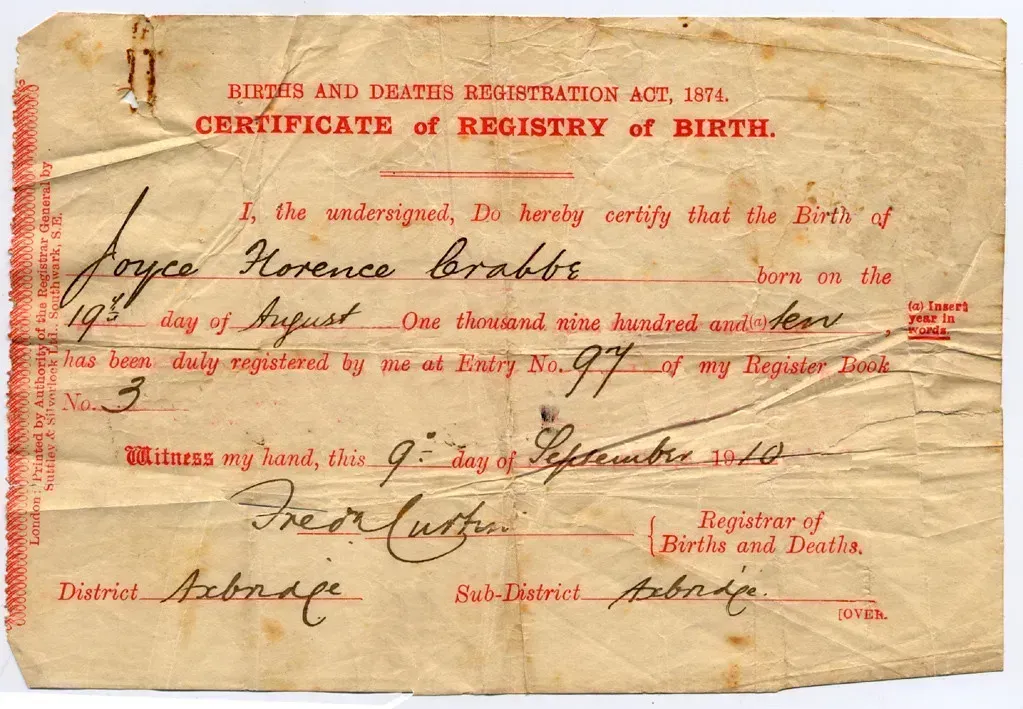 BIRTHS AND DEATHS REGISTRATION ACT, 1874.
CERTIFICATE of REGISTRY of BIRTH.
I, the undersigned, Do hereby certify that the Birth of
Joyce Florence Crabbe born on the
19th day of August One thousand nine hundred and (a) ten,
(a) Insert
year in
words.
has been duly registered by me at Entry No. 97 of my Register Book
No. 3
Witness my hand, this 9 day of September 1910
Fredk Curtin
Registrar of
Births and Deaths.
District Axbridge Sub-District Axbridge.
[OVER.
London: Printed by Authority of the Registrar General by
Suttley & Silverlock Ltd., Southwark, S.E.